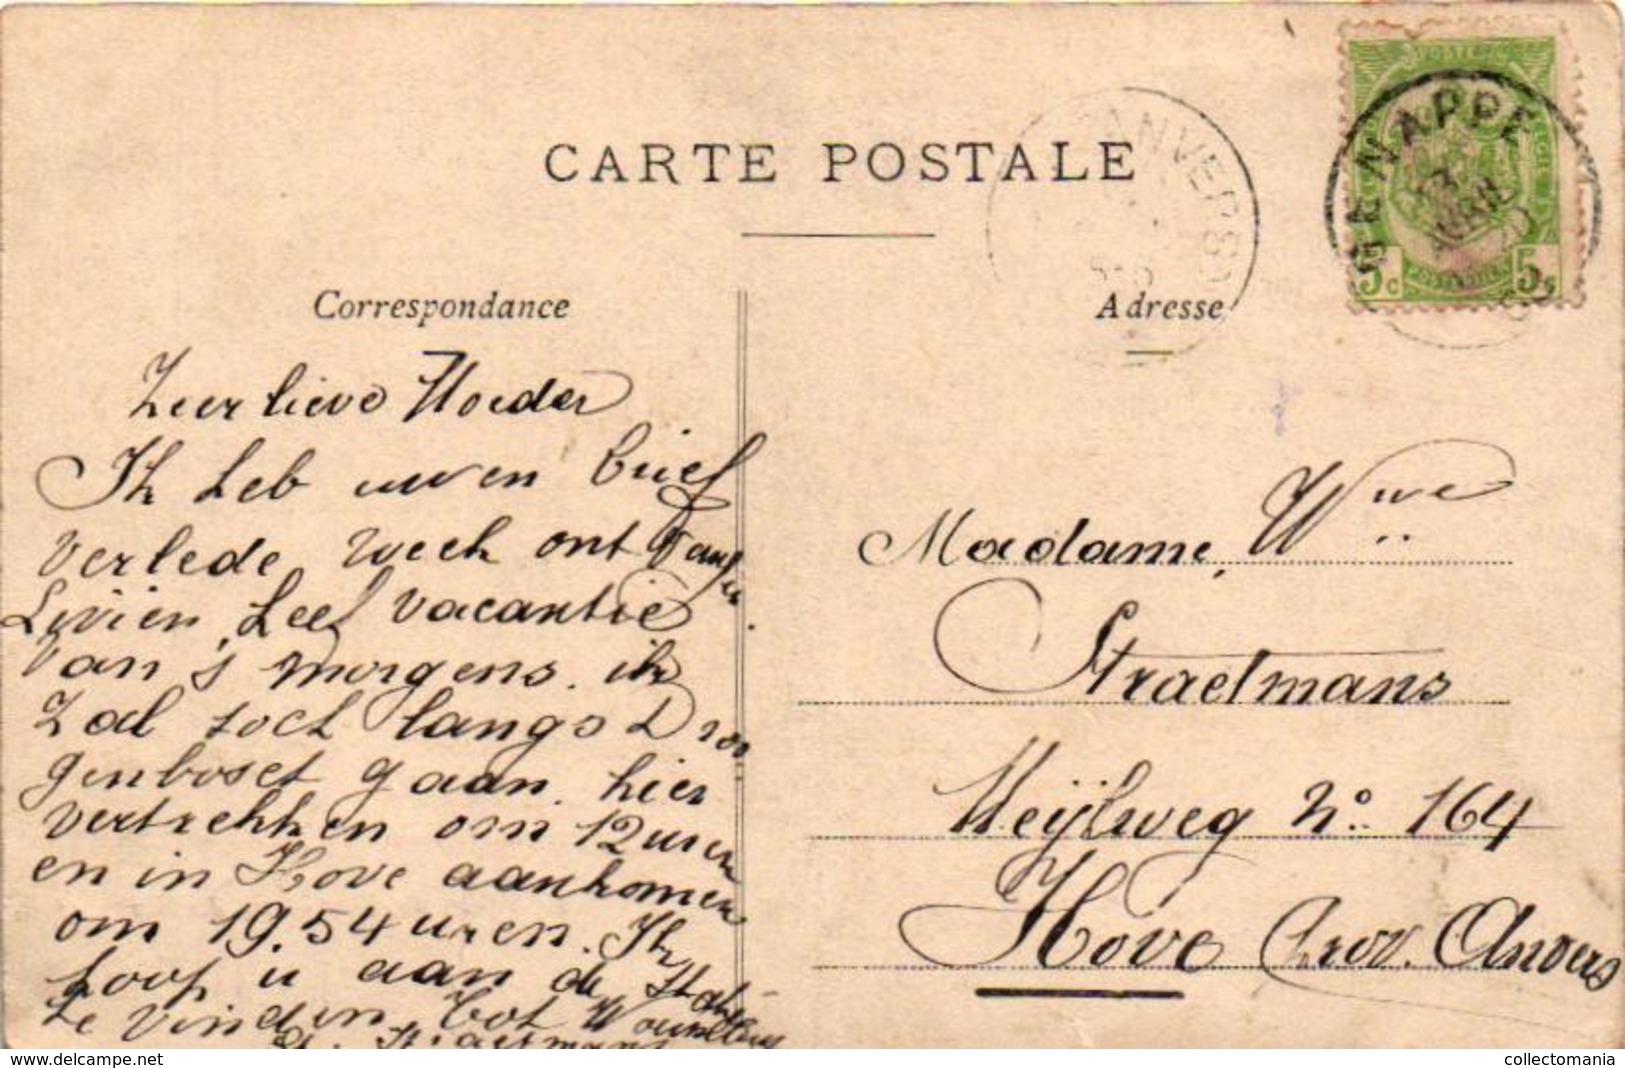 CARTE POSTALE
ANVERS
GENAPPE
13
AVRIL
5c 5c
Correspondance
Adresse
Zeer lieve Moeder
Ik heb uwen brief
verlede week ontvangen
heel vacantie
van s morgens. ik
zal toch langs Droo
genboset gaan. hier
vertrekken om 12 uren
en in Hove aankomen
om 19.54 uren. Ik
hoop u aan de statie
te vinden tot
Straelmans
Madame, Wwe
Straelmans
Meÿlweg No. 164
Hove Prov. Anvers
https://www.delcampe.net
collectomania